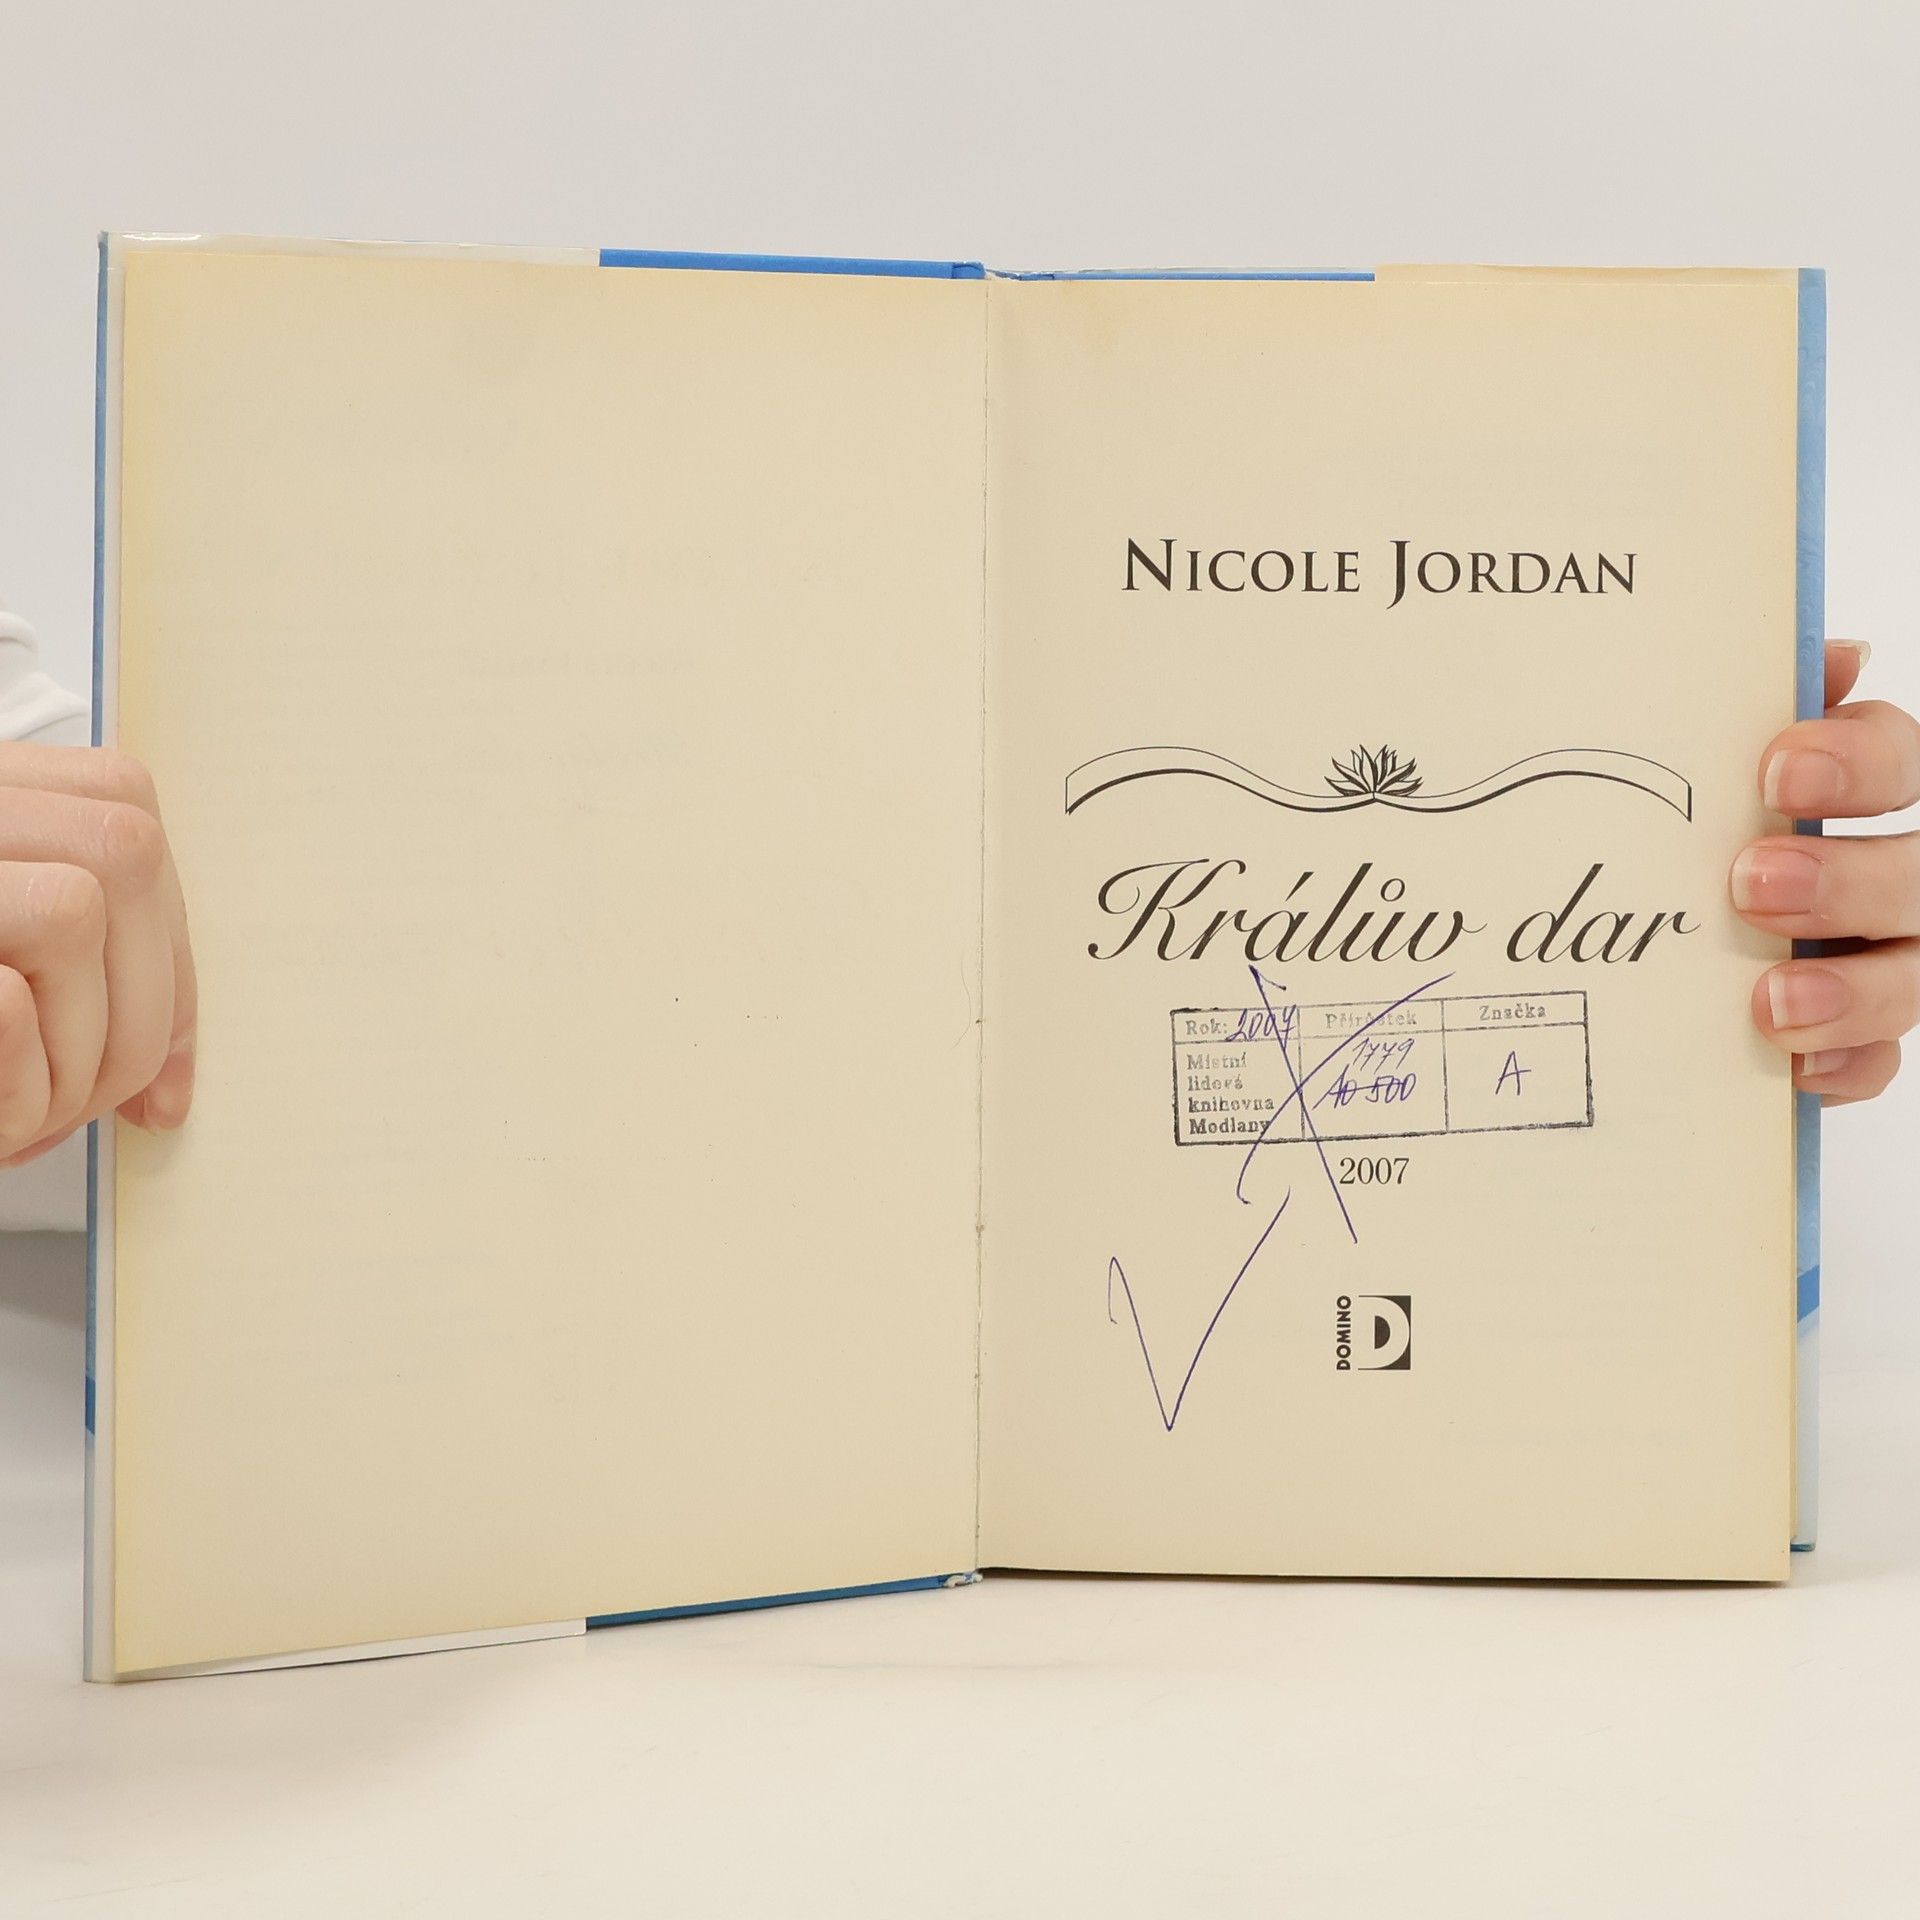 NICOLE JORDAN
Králův dar
Rok: 2007 Přírůstek Značka
Místní
lidová
knihovna
Modlany
1779
10 500
A
2007
DOMINO D